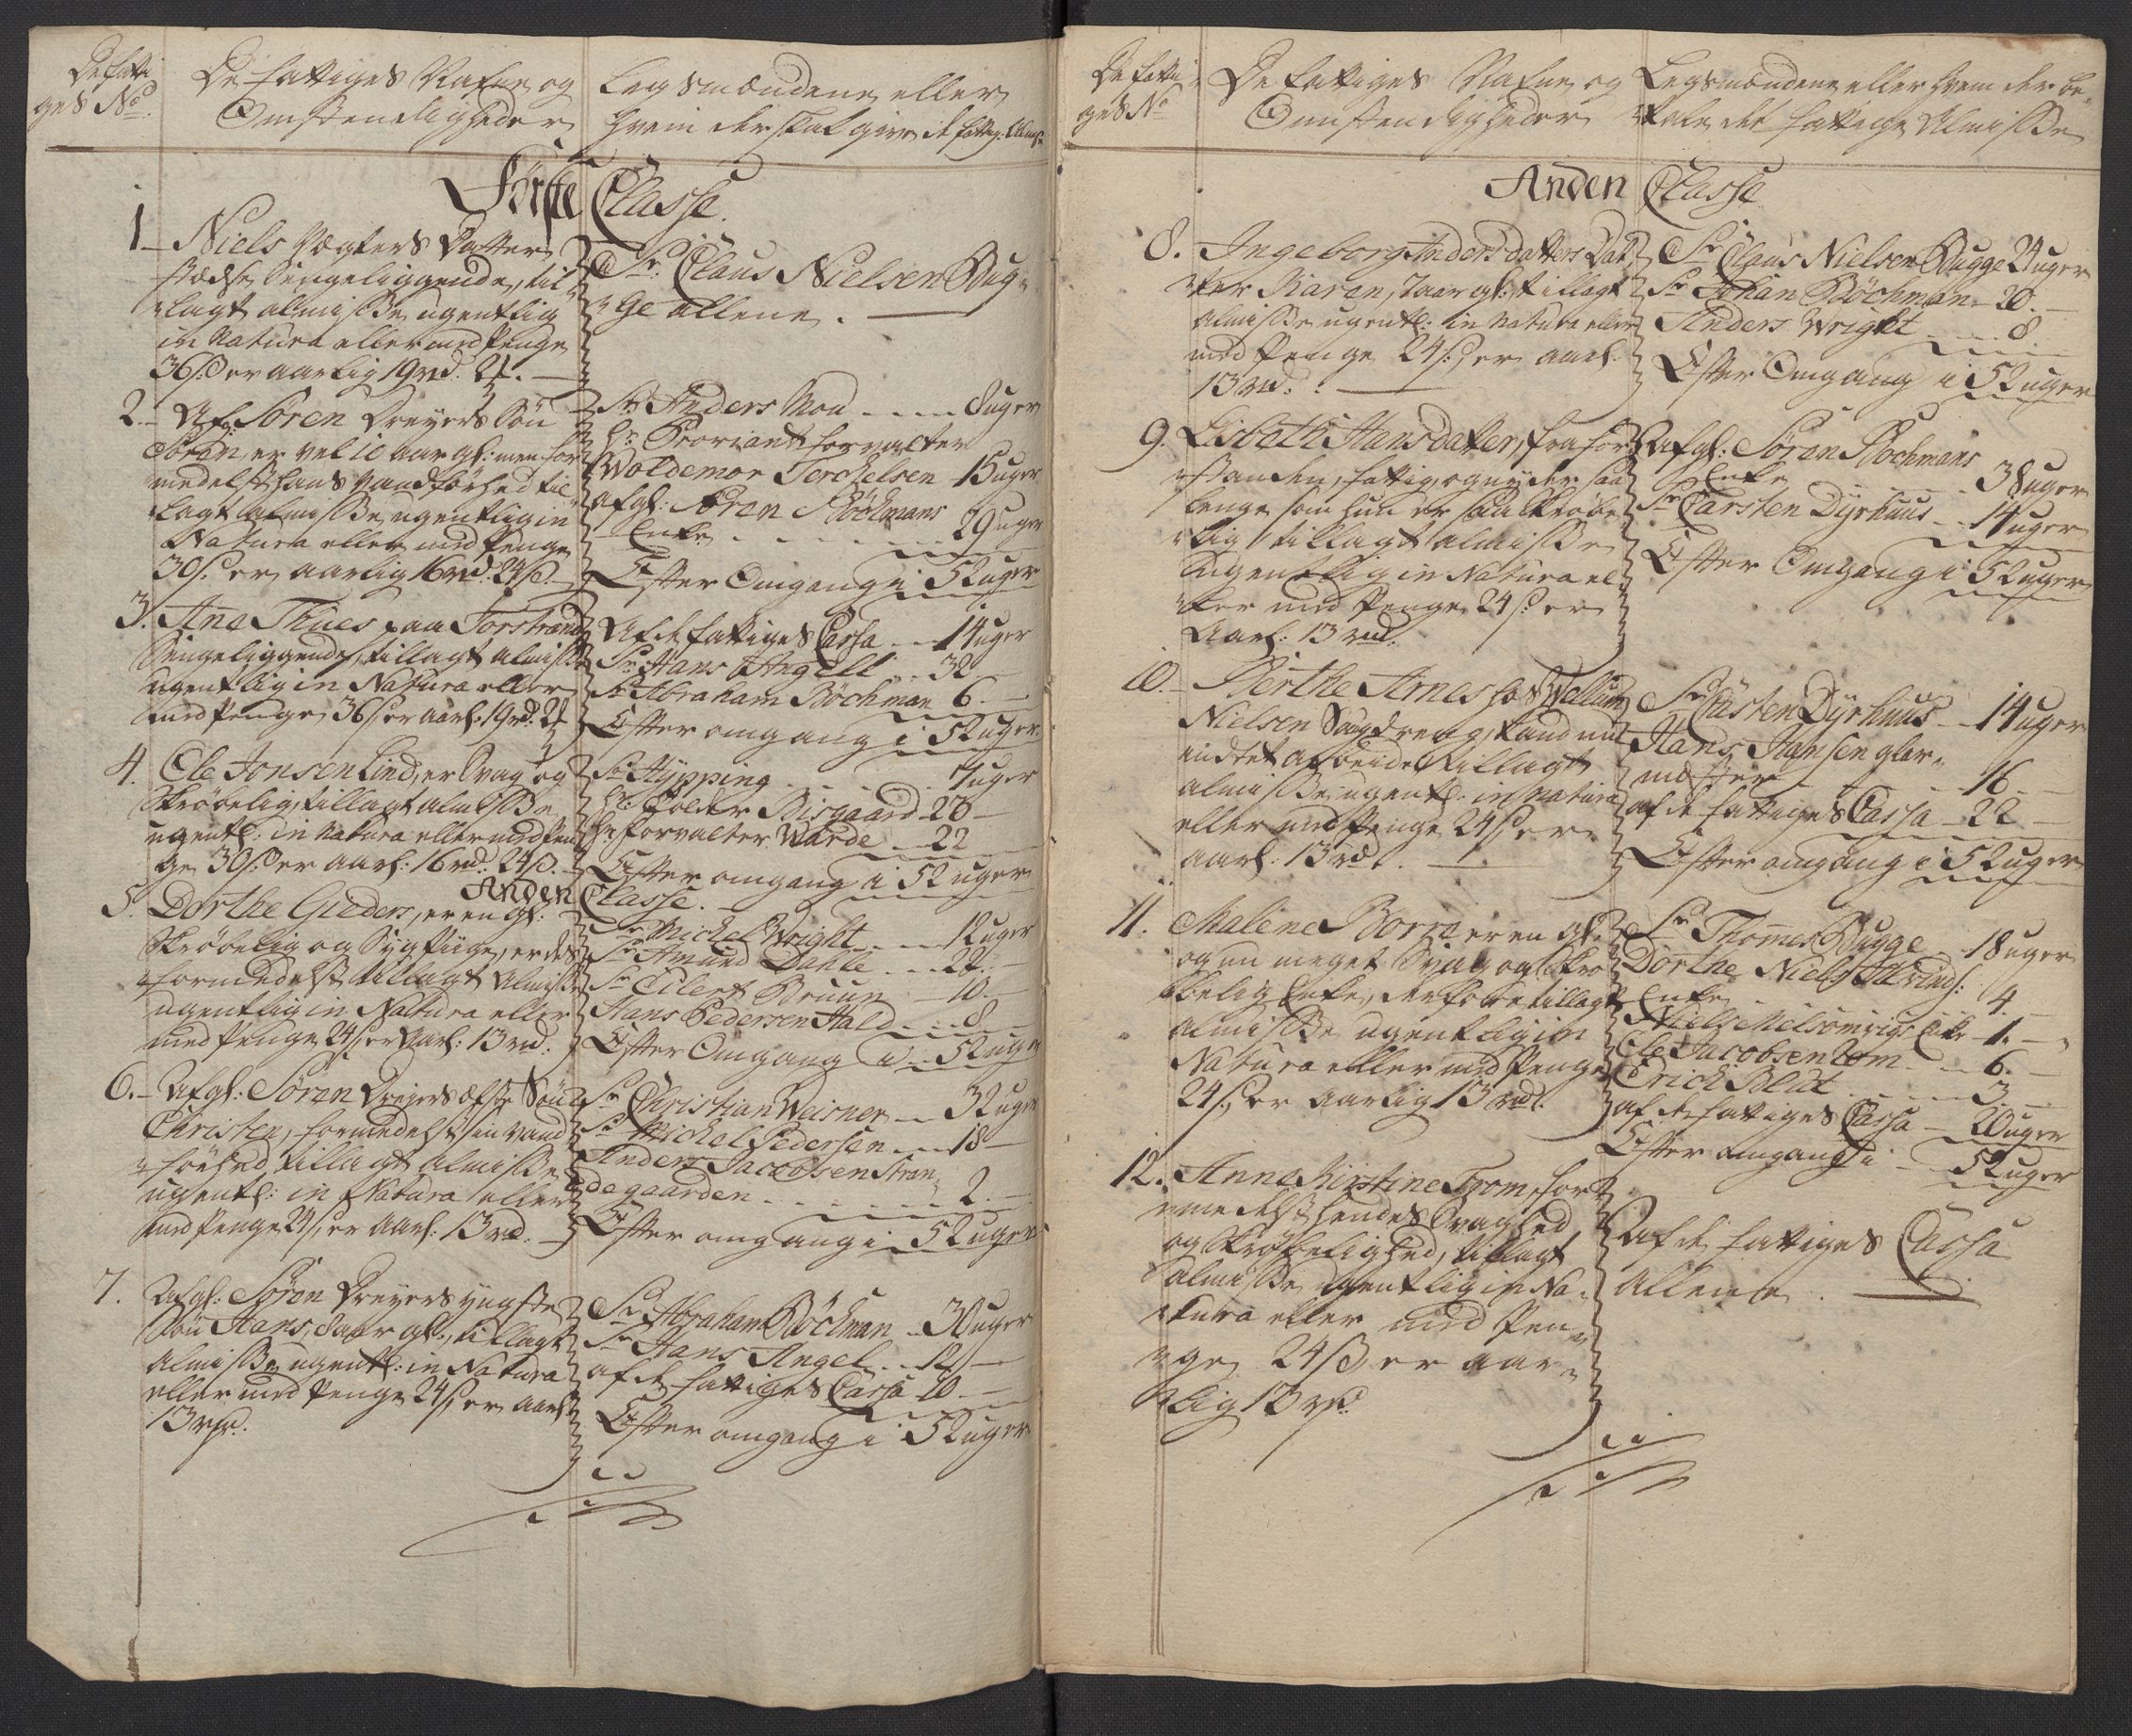 De fatti-
ges No.
De fattiges Nafne og
Omstendigheder
Legsmændene eller
hvem der skal give de fattig: Almiss:
Første Classe.
1 Niels Vægters Datter
stædse Sengeliggende, til-
lagt almisse ugentlig
in Natura eller med Penge
36 s. er aarlig 19 rd.
Sr. Claus Nielsen Bug-
ge allene.
2. Afg: Søren Dreyers Søn
Søren, er vel 10 aar gl: men for-
medelst hans Vandførhed til-
lagt almisse, ugentlig in
Natura eller med Penge
30 s. er aarlig 16 rd. 24 s.
Sr. Anders Moe 8 uger
Hr. Proviantforvalter
Woldemor Terchelsen 15 uger
afgl: Søren Bøchmans
Enke 29 uger
Efter Omgang i 52 uger
3. Ane Thues paa Torstrand
Sengeliggende, tillagt almisse
ugentlig in Natura eller
med Penge 36 s. er aarl: 19 rd.
Af de fattiges Cassa 14 uger
Sr. Hans Angell 32
Sr. Abraham Bøchman 6.
Efter omgang i 52 uger.
4. Ole Jonsen Lind, er Svag og
Skrøbelig, tillagt almisse
ugentl: in Natura eller med Pen-
ge 30 s. er aarl: 16 rd. 24 s.
Sr. Hypping
Hr. Toldr Bisgaard
Hr. Forvalter Warde 22
Efter omgang i 52 uger
Anden Classe.
5. Dorthe Gieders, er en gl:
Skrøbelig og Sygelig, er des-
formedelst tillagt almisse
ugentlig in Natura eller
med Penge 24 s. er Aarl: 13 rd.
Sr. Michel Wright 12 uger
Sr. Amund Dahle 22.
Sr. Eilert Bruun 10.
Hans Pedersen Hald 8
Efter Omgang i 52 uger
6. Afgl: Søren Dreyers ælste Søn
Christen, formedelst sin Vand-
førhed, tillagt almisse
ugentl: in Natura eller
med Penge 24 s. er Aarl: 13 rd.
Sr. Christian Weisner 32 uger
Sr. Michel Pedersen 18
Anders Jacobsen Stran-
degaarden 2.
Efter omgang i 52 uger
7. Afgl: Søren Dreyers yngste
Søn Hans, 8 aar gl:, tillagt
almisse ugentl: in Natura
eller med Penge 24 s. er aarl
13 rd.
Sr. Abraham Bøchman 30 uger
Sr. Hans Angel 12
af de fattiges Cassa 10.
Efter omgang i 52 uger
De fatti-
ges No
De fattiges Nafne og
Omstendigheder
Legsmændene eller hvem der be-
tale det fattige Almisse
Anden Classe
8. Ingeborg Anders datters Dat-
ter Karen, 7 aar gl: tillagt
almisse ugentl: in Natura eller
med Penge 24 s. er aarl.
13 rd.
Sr. Claus Nielsen Bugge 24 uger
Sr. Johan Bøchman 20.
Anders Wright 8.
Efter Omgang i 52 uger
9. Lisbeth Hansdatter, fra for-
standen, fattig, og nyder saa
lenge som hun er saa Skrøbe-
lig tillagt almisse
ugentlig in Natura el-
ler med Penge 24 s. er
Aarl: 13 rd.
Afgl: Søren Bøchmans
Enke 38 uger
Sr. Carsten Dyrhuus 14 uger
Efter Omgang i 52 uger
10. Berthe Arnes hos Wellum
Nielsen Saugdreng, kand nu
indtet arbeide, tillagt
almisse ugentl: in Natura
eller med Penge 24 s. er
aarl: 13 rd.
Sr. Casten Dyrhuus 14 uger
Hans Hansen glar-
mester 16
af de fattiges Cassa 22
Efter omgang i 52 uger
11. Malene Borre er en gl:
og nu meget Svag og Skrø-
belig Enke, derfore tillagt
almisse ugentlig in
Natura eller med Penge
24 s. er Aarlig 13 rd.
Sr. Thomes Bugge 18 uger
Dorthe Niels
Enke 4.
Niels Enke 1.
Ole Jacobsen 6.
Erich Blut 3.
af de fattiges Cassa 20 uger
Efter omgang i 52 uger
12. Anne Kirstine From, for-
medelst hendes Svaghed
og Skrøbelighed, tillagt
almisse ugentlig in Na-
tura eller med Pen-
ge 24 s. er aar-
lig 13 rd.
Af de fattiges Cassa
allene.